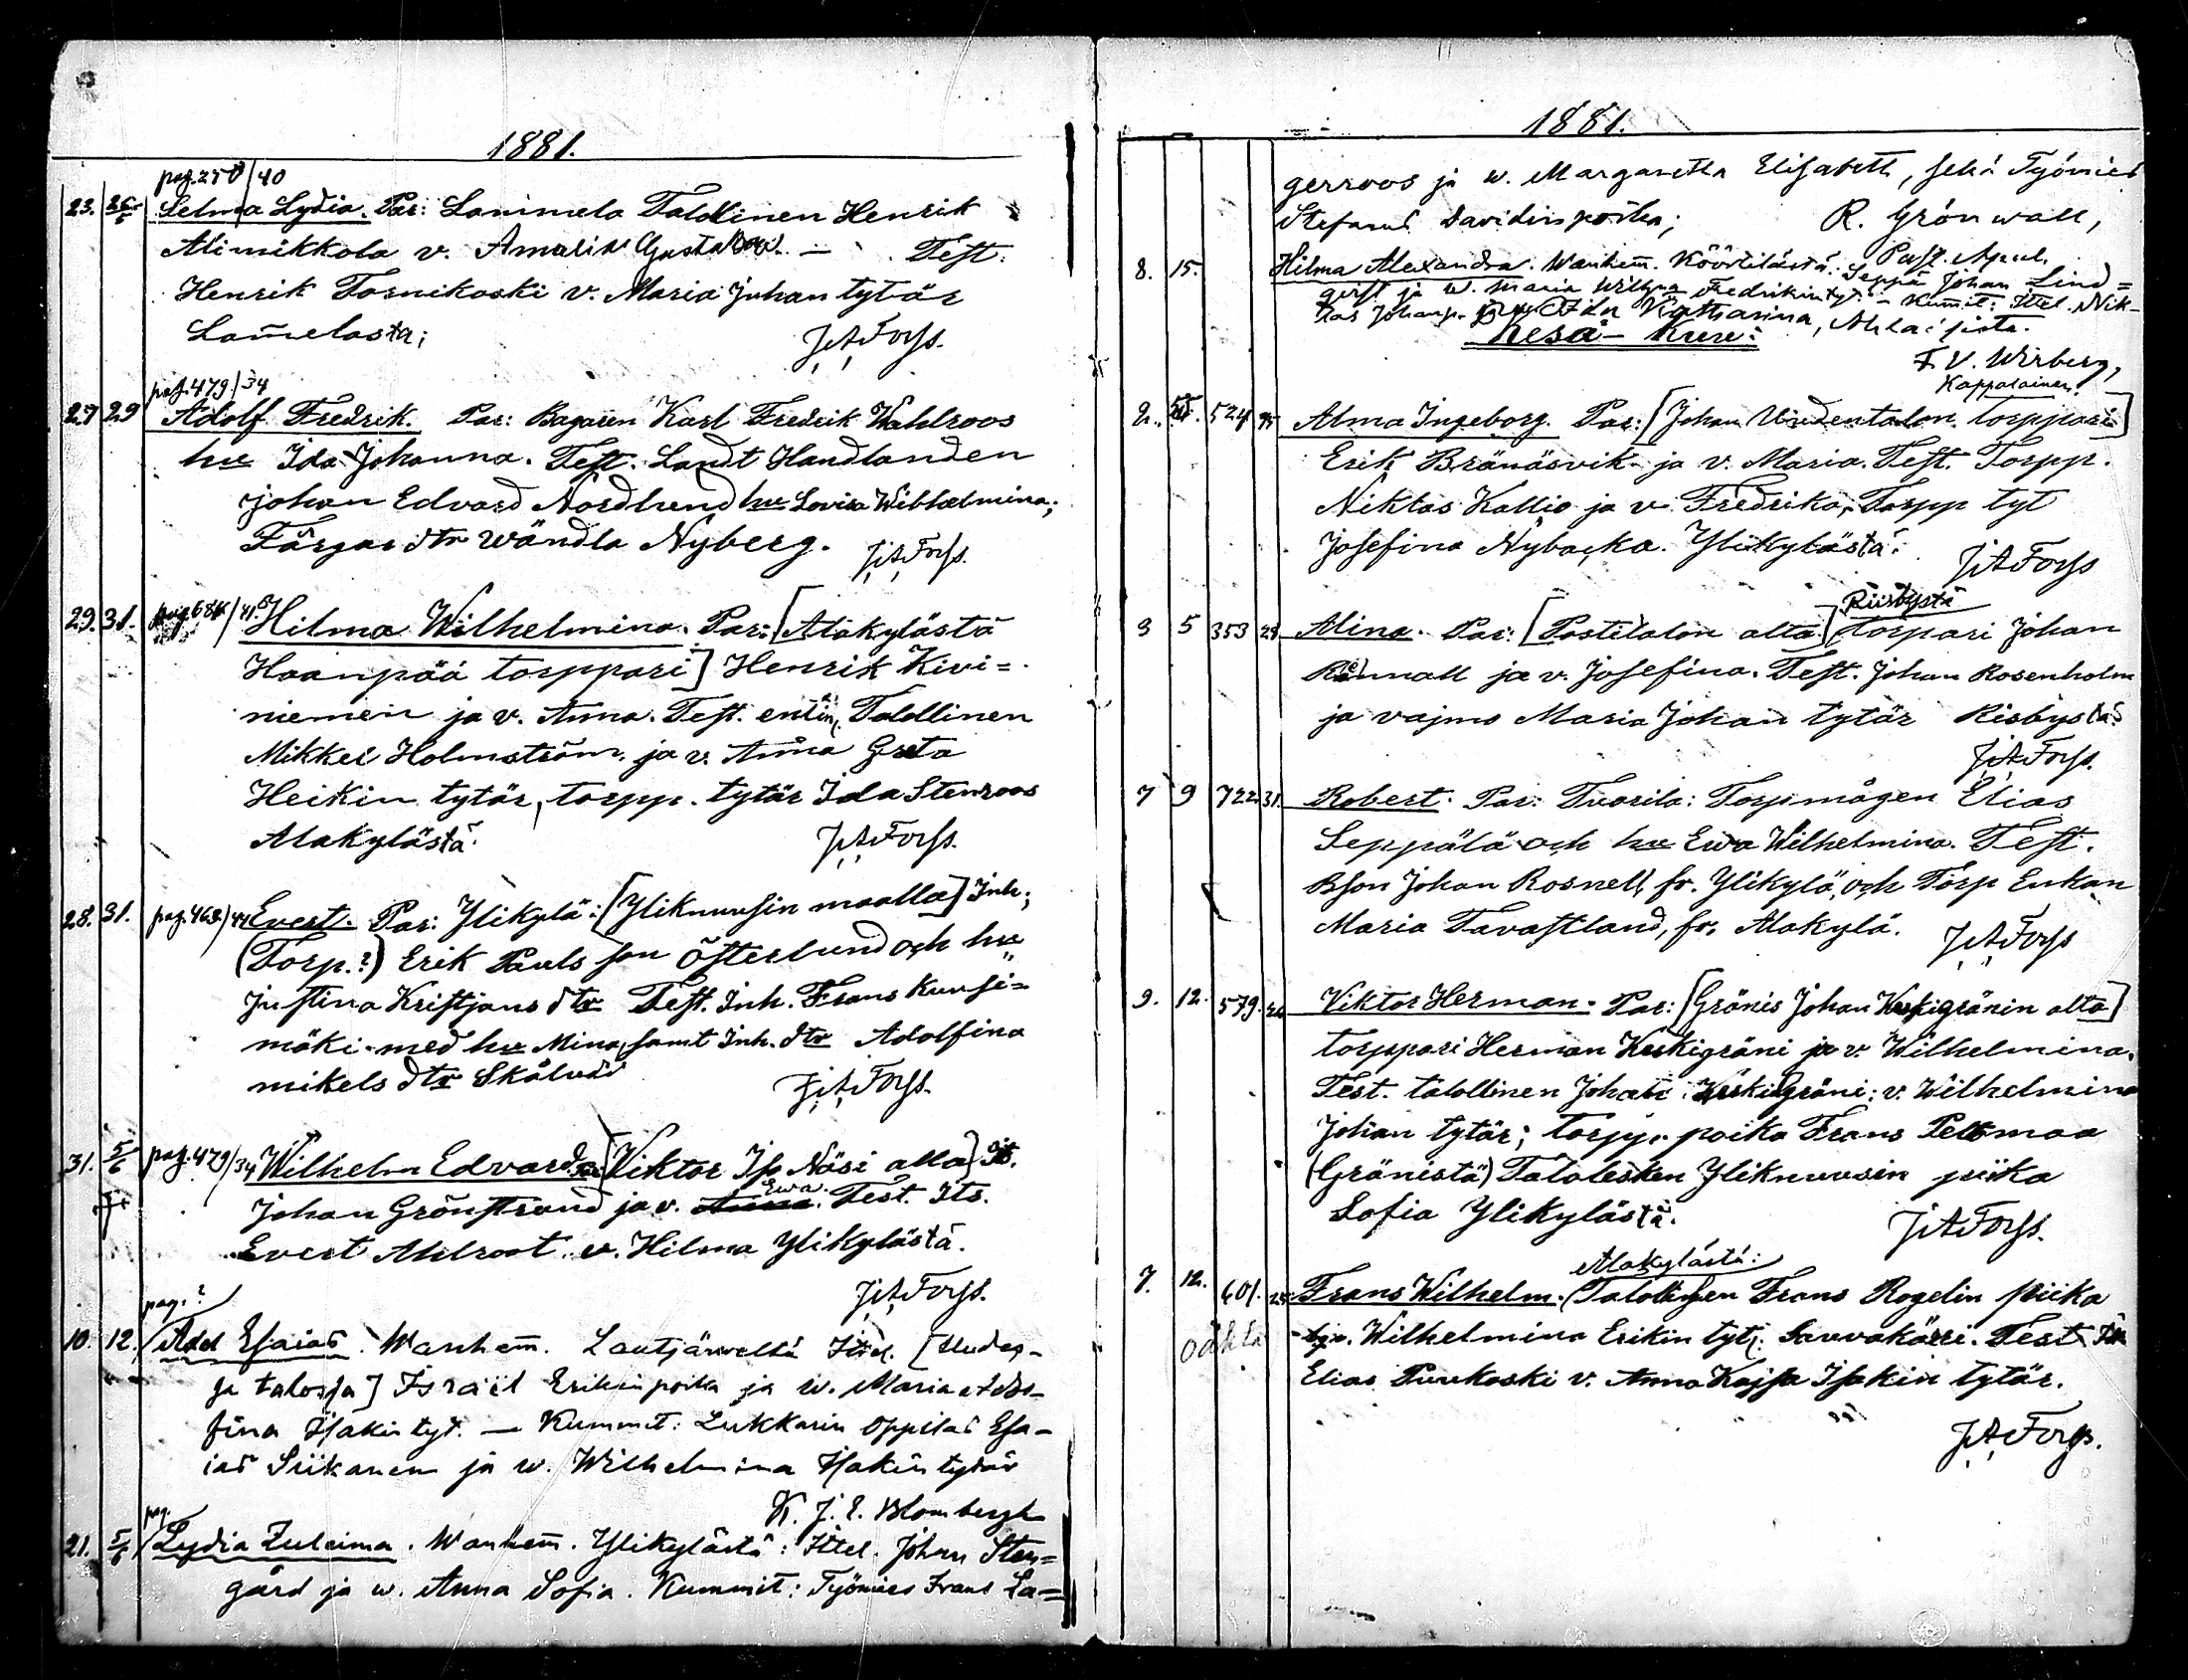 1881.
pag. 250/40
23. 26/5 Selma Lydia. Par: Lammela Talollinen Henrik
Alimikkola v. Amalia Gustava — Test.
Henrik Tornikoski v. Maria Juhan tytär
Lam̄elasta; J.A. Forss.
pag. 479/34
27 29 Adolf Fredrik. Par: Bagaren Karl Fredrik Wahlroos
hu Ida Johanna. Test. Landt Handlanden
Johan Edvard Nordlund hu Lovisa Wilhelmina;
Färgar dtr Wändla Nyberg. J.A. Forss.
29. 31. pag. 681/41. Hilma Wilhelmina. Par: [Alakylästä
Haanpää torppari] Henrik Kivi=
niemen ja v. Anna. Test. entin, Talollinen
Mikkel Holmström, ja v. Anna Greta
Heikin tytär, torpp. tytär Ida Stenroos
Alakylästä. J.A. Forss.
28. 31. pag. 468/44 Evert. Par: Ylikylä: [Yliknuusin maalla] Inh;
(Torp.?) Erik Pauls son Österlund och hu
Justina Kristjans dtr Test. Inh. Frans Kuusi=
mäki med hu Mina, samt Inh. dtr Adolfina
mikels dtr Skålvad J.A. Forss.
31. 5/6 pag. 479/34 Wilhelm Edvard. [Viktor Is. Näsi alla] It.
Johan Grönstrand ja v. Anna Ewa. Test. Its.
Evert Ahlroot v. Hilma Ylikylästä.
J.A. Forss.
pag. ?
10. 12. Axel Esaias. Wanhem̄. Lautjärveltä Itsel. [Uudes-
sa talossa] Israël Erikinpoika ja w. Maria Ado-
fina Isakintyt. — Kummit: Lukkarin oppilas Esa-
ias Siikanen ja w. Wilhelmina Isakin tytär
K. J. E. Blombergh
pag.
21. 5/6 Lydia Zuleima. Wanhem̄. Ylikylästä: Itsel. Johan Sten=
gård ja w. Anna Sofia. Kummit: Työmies Frans La=
1881.
gerroos ja w. Margaretha Elisabeth, sekä Työmies
Stefanus Davidinpoika; R. Grönwall,
Past. Apul.
8. 15. Hilma Alexandra. Wanhem̄. Köörtilästä: Seppä Johan Lind=
qvist ja w. Maria Wilhna Fredrikintyt. – Kummit: Itsel. Nik-
las Johansp. ja Ida Katharina, Ahlaisista.
Kesä-Kuu:
F. V. Wirberg,
Kappalainen.
2. 5. 524 35 Alma Ingeborg. Par: [Johan Uudentalon torppari]
Erik Bränäsvik ja v. Maria. Test. Torpp.
Niklas Kallio ja v. Fredrika, Torpp tyt
Josefina Nybacka. Ylikylästä: J.A. Forss
Riisbystä
3 5 353 29 Alina. Par: [Postitalon alta] torpari Johan
Rännall ja v. Josefina. Test. Johan Rosenholm
ja vajmo Maria Johan tytär Risbystä
J.A. Forss.
7 9 722 31. Robert. Par: Tuorila: Torpmågen Elias
Seppälä och hu Ewa Wilhelmina. Test.
Bson Johan Rosnell, fr. Ylikylä, och Torp Enkan
Maria Tavastland, fr. Alakylä. J.A. Forss
9. 12. 579. 26 Viktor Herman. Par: [Gränis Johan Keskigränin alta]
torppari Herman Keskigräni ja v. Wilhelmina.
Test. talollinen Johan Keskigräni: v. Wilhelmina
Johan tytär; torpp. poika Frans Peltomaa
(Gränistä) Talolesken Yliknuusin piika
Sofia Ylikylästä. J.A. Forss.
Alakylästä:
7. 12. 601. 25 Frans Wilhelm. (Talollisen Frans Rogelin piika
Wilhelmina Erikin tytj. Sauvakärri. Test
Elias Puukoski v. Anna Kajsa Isakin tytär.
J.A. Forss.